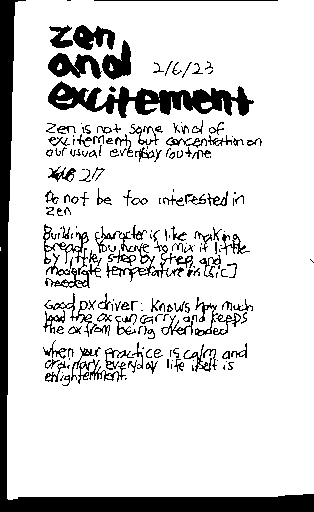 zen
and 2/6/23
excitement
Zen is not some kind of
excitement, but concentration on
our usual everyday routine
2/7
Do not be too interested in
zen
Building character is like making
bread. You have to mix it little
by little, step by step, and
moderate temperature in [sic]
needed
Good ox driver: Knows how much
load the ox can carry, and keeps
the ox from being overloaded
when your practice is calm and
ordinary, everyday life itself is
enlightenment.